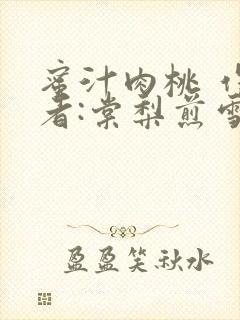 蜜汁肉桃
者:棠梨煎雪
盈盈笑秋水